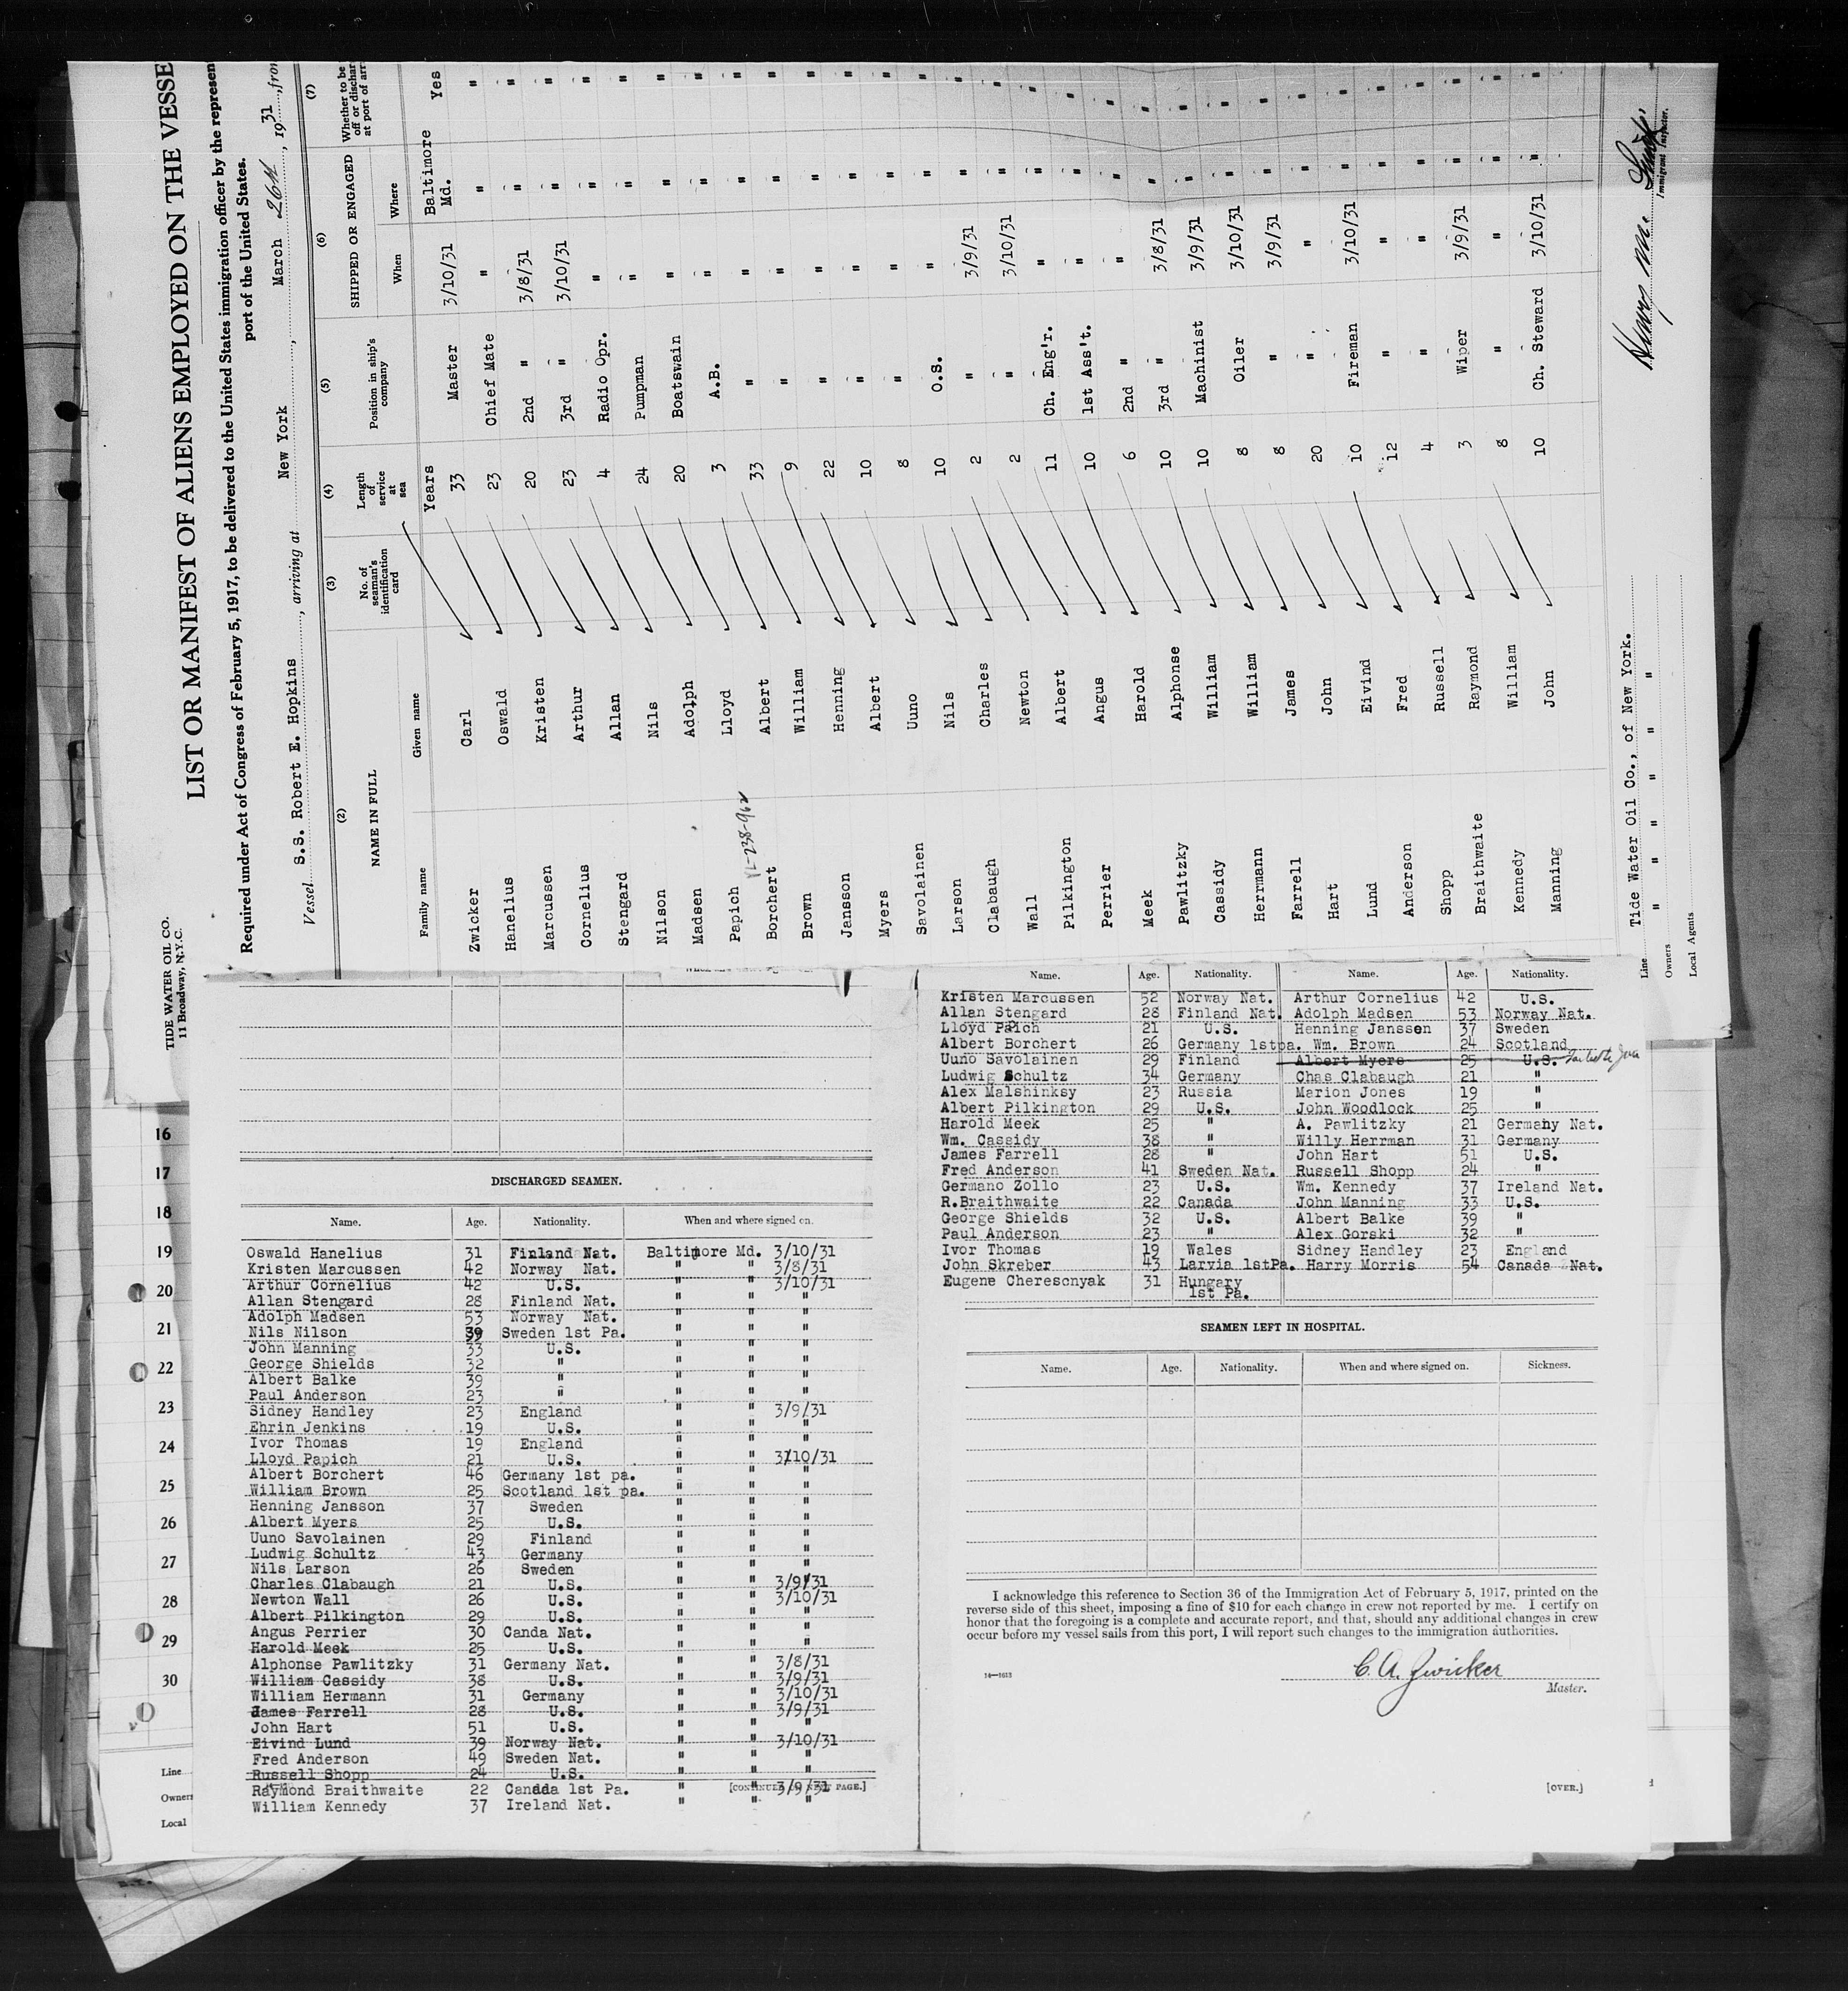 LIST OR MANIFEST OF ALIENS EMPLOYED ON THE VESSE
Required under Act of Congress of February 5, 1917, to be delivered to the United States immigration officer by the represen
port of the United States.
Vessel S.S. Robert E. Hopkins, arriving at New York, March 26th, 1931, from
(2) (3) (4) (5) (6) (7)
NAME IN FULL
Family name Given name
No. of seaman's identification card
Length of service at sea
Position in ship's company
SHIPPED OR ENGAGED
When Where
Whether to be
off or dischar
at port of arr
Years Baltimore Md. Yes
Zwicker Carl 33 Master 3/10/31 " "
Hanelius Oswald 23 Chief Mate " " "
Marcussen Kristen 20 2nd " 3/8/31 " "
Cornelius Arthur 23 3rd " 3/10/31 " "
Stengard Allan 4 Radio Opr. " " "
Nilson Nils 24 Pumpman " " "
Madsen Adolph 20 Boatswain " " "
Papich Lloyd 3 A.B. " " "
Borchert Albert 33 " " " "
Brown William 9 " " " "
Jansson Henning 22 " " " "
Myers Albert 10 " " " "
Savolainen Uuno 8 " " " "
Larson Nils 10 O.S. " " "
Clabaugh Charles 2 " 3/9/31 " "
Wall Newton 2 " 3/10/31 " "
Pilkington Albert 11 Ch. Eng'r. " " "
Perrier Angus 10 1st Ass't. " " "
Meek Harold 6 2nd " " " "
Pawlitzky Alphonse 10 3rd " 3/8/31 " "
Cassidy William 10 Machinist 3/9/31 " "
Herrmann William 8 Oiler 3/10/31 " "
Farrell James 8 " 3/9/31 " "
Hart John 20 " " " "
Lund Eivind 10 Fireman 3/10/31 " "
Anderson Fred 12 " " " "
Shopp Russell 4 " " " "
Braithwaite Raymond 3 Wiper 3/9/31 " "
Kennedy William 8 " " " "
Manning John 10 Ch. Steward 3/10/31 " "
Line Tide Water Oil Co., of New York.
Owners " " " " " "
Local Agents
Immigrant Inspector.
TIDE WATER OIL CO.
11 Broadway, N.Y.C.
16
17
18
19
20
21
22
23
24
25
26
27
28
29
30
Line
Owners
Local
DISCHARGED SEAMEN.
Name. Age. Nationality. When and where signed on.
Oswald Hanelius 31 Finland Nat. Baltimore Md. 3/10/31
Kristen Marcussen 42 Norway Nat. " " 3/8/31
Arthur Cornelius 42 U.S. " " 3/10/31
Allan Stengard 28 Finland Nat. " " "
Adolph Madsen 53 Norway Nat. " " "
Nils Nilson 39 Sweden 1st Pa. " " "
John Manning 33 U.S. " " "
George Shields 32 " " " "
Albert Balke 39 " " " "
Paul Anderson 23 " " " "
Sidney Handley 23 England " " 3/9/31
Ehrin Jenkins 19 U.S. " " "
Ivor Thomas 19 England " " "
Lloyd Papich 21 U.S. " " 3/10/31
Albert Borchert 46 Germany 1st pa. " " "
William Brown 25 Scotland 1st pa. " " "
Henning Jansson 37 Sweden " " "
Albert Myers 25 U.S. " " "
Uuno Savolainen 29 Finland " " "
Ludwig Schultz 43 Germany " " "
Nils Larson 26 Sweden " " "
Charles Clabaugh 21 U.S. " " 3/9/31
Newton Wall 26 U.S. " " 3/10/31
Albert Pilkington 29 U.S. " " "
Angus Perrier 30 Canda Nat. " " "
Harold Meek 25 U.S. " " "
Alphonse Pawlitzky 31 Germany Nat. " " 3/8/31
William Cassidy 38 U.S. " " 3/9/31
William Hermann 31 Germany " " 3/10/31
James Farrell 28 U.S. " " 3/9/31
John Hart 51 U.S. " " "
Eivind Lund 39 Norway Nat. " " 3/10/31
Fred Anderson 49 Sweden Nat. " " "
Russell Shopp 24 U.S. " " "
Raymond Braithwaite 22 Canada 1st Pa. " " 3/9/31
William Kennedy 37 Ireland Nat. " " "
Name. Age. Nationality. Name. Age. Nationality.
Kristen Marcussen 52 Norway Nat. Arthur Cornelius 42 U.S.
Allan Stengard 28 Finland Nat. Adolph Madsen 53 Norway Nat.
Lloyd Papich 21 U.S. Henning Janssen 37 Sweden
Albert Borchert 26 Germany 1stpa. Wm. Brown 24 Scotland
Uuno Savolainen 29 Finland Albert Myers 25 U.S.
Ludwig Schultz 34 Germany Chas Clabaugh 21 "
Alex Malshinksy 23 Russia Marion Jones 19 "
Albert Pilkington 29 U.S. John Woodlock 25 "
Harold Meek 25 " A. Pawlitzky 21 Germany Nat.
Wm. Cassidy 38 " Willy Herrman 31 Germany
James Farrell 28 " John Hart 51 U.S.
Fred Anderson 41 Sweden Nat. Russell Shopp 24 "
Germano Zollo 23 U.S. Wm. Kennedy 37 Ireland Nat.
R.Braithwaite 22 Canada John Manning 33 U.S.
George Shields 32 U.S. Albert Balke 39 "
Paul Anderson 23 " Alex Gorski 32 "
Ivor Thomas 19 Wales Sidney Handley 23 England
John Skreber 43 Larvia 1stPa. Harry Morris 54 Canada Nat.
Eugene Cheresonyak 31 Hungary
1st Pa.
SEAMEN LEFT IN HOSPITAL.
Name. Age. Nationality. When and where signed on. Sickness.
I acknowledge this reference to Section 36 of the Immigration Act of February 5, 1917, printed on the
reverse side of this sheet, imposing a fine of $10 for each change in crew not reported by me. I certify on
honor that the foregoing is a complete and accurate report, and that, should any additional changes in crew
occur before my vessel sails from this port, I will report such changes to the immigration authorities.
C. A. Zwicker
Master.
14—1613
[OVER.]